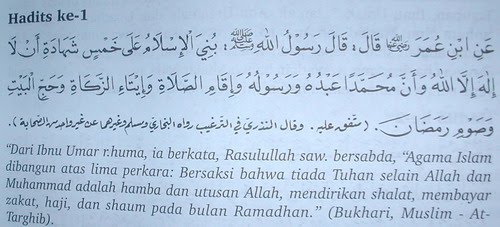 Hadits ke-1
عَنِ ابْنِ عُمَرَ رضي الله عنه قَالَ: قَالَ رَسُوْلُ اللّٰهِ ﷺ: بُنِيَ الْإِسْلَامُ عَلَى خَمْسٍ شَهَادَةِ أَنْ لَا
إِلٰهَ إِلَّا اللّٰهُ وَأَنَّ مُحَمَّدًا عَبْدُهُ وَرَسُوْلُهُ وَإِقَامِ الصَّلَاةِ وَإِيْتَاءِ الزَّكَاةِ وَحَجِّ الْبَيْتِ
وَصَوْمِ رَمَضَانَ. (متفق عليه. وقال المنذري في الترغيب رواه البخاري ومسلم وغيرهما عن غير واحد من الصحابة).
"Dari Ibnu Umar r.huma, ia berkata, Rasulullah saw. bersabda, "Agama Islam
dibangun atas lima perkara: Bersaksi bahwa tiada Tuhan selain Allah dan
Muhammad adalah hamba dan utusan Allah, mendirikan shalat, membayar
zakat, haji, dan shaum pada bulan Ramadhan." (Bukhari, Muslim - At-
Targhib).